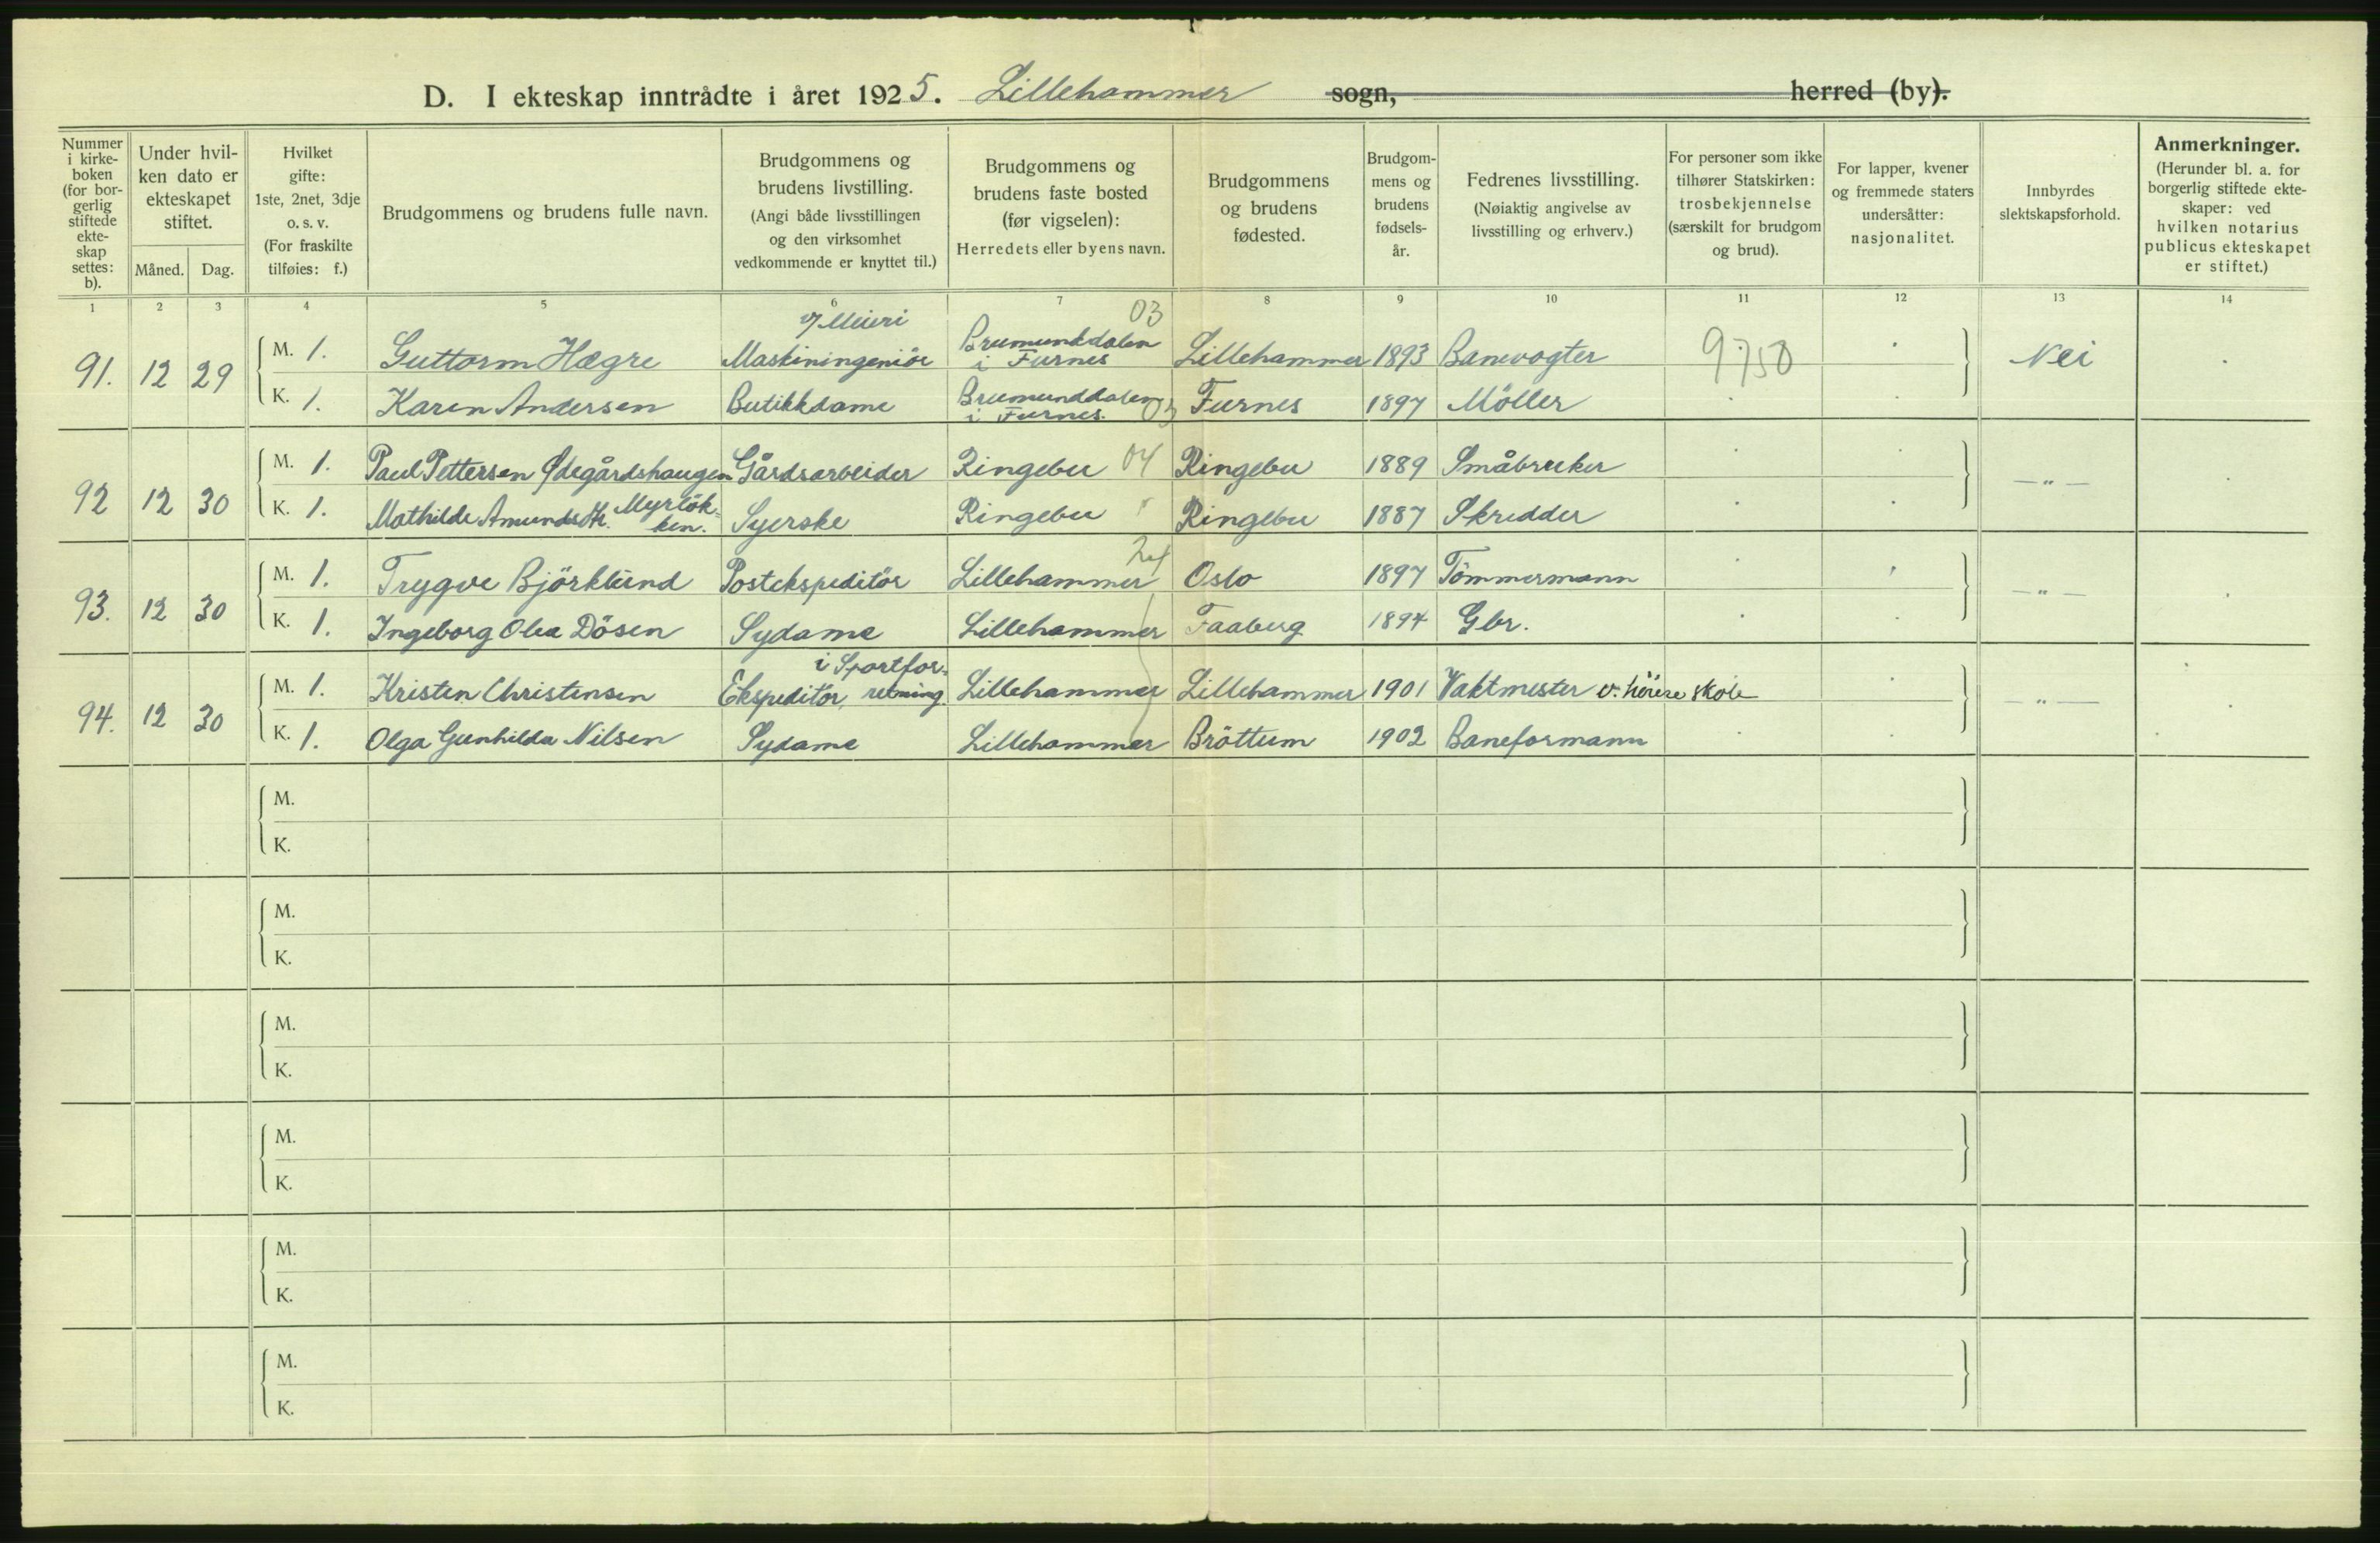 D. I ekteskap inntrådte i året 1925. Lillehammer sogn, herred (by).
Nummer i kirke-boken (for bor-gerlig stiftede ekte-skap settes: b).
Under hvil-ken dato er ekteskapet stiftet.
Måned. Dag.
Hvilket gifte: 1ste, 2net, 3dje o. s. v. (For fraskilte tilføies: f.)
Brudgommens og brudens fulle navn.
Brudgommens og brudens livstilling. (Angi både livsstillingen og den virksomhet vedkommende er knyttet til.)
Brudgommens og brudens faste bosted (før vigselen): Herredets eller byens navn.
Brudgommens og brudens fødested.
Brudgom-mens og brudens fødsels-år.
Fedrenes livsstilling. (Nøiaktig angivelse av livsstilling og erhverv.)
For personer som ikke tilhører Statskirken: trosbekjennelse (særskilt for brudgom og brud).
For lapper, kvener og fremmede staters undersåtter: nasjonalitet.
Innbyrdes slektskapsforhold.
Anmerkninger. (Herunder bl. a. for borgerlig stiftede ekte-skaper: ved hvilken notarius publicus ekteskapet er stiftet.)
1 2 3 4 5 6 7 8 9 10 11 12 13 14
91. 12 29 M. 1. Guttorm Hægre Maskiningeniör Meieri Brumunddalen i Furnes 03 Lillehammer 1893 Banevogter 9750 Nei
K. 1. Karen Andersen Butikkdame Brumunddalen i Furnes. 03 Furnes 1897 Möller
92 12 30 M. 1. Paul Pettersen Ødegårdshaugen Gårdsarbeider Ringebu 04 Ringebu 1889 Småbruker — " —
K. 1. Mathilde Amundsdtr. Myrlök-ken. Syerske Ringebu " Ringebu 1887 Skredder
93. 12 30 M. 1. Trygve Björklund Postekspeditör Lillehammer 24 Oslo 1897 Tömmermann — " —
K. 1. Ingeborg Olea Dösen Sydame Lillehammer Faaberg 1894 Gbr.
94. 12 30 M. 1. Kristen Christensen Ekspeditör i Sportfor-retning. Lillehammer Lillehammer 1901 Vaktmester v. höiere skole — " —
K. 1. Olga Gunhilda Nilsen Sydame Lillehammer Bröttum 1902 Baneformann
M.
K.
M.
K.
M.
K.
M.
K.
M.
K.
M.
K.